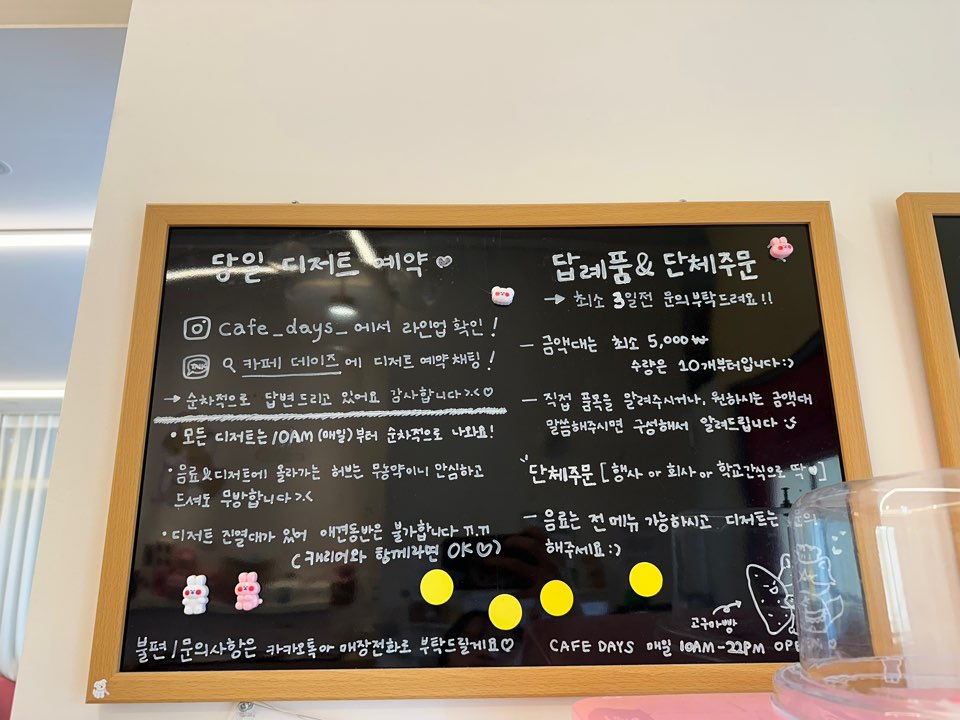 당일 디저트 예약♡
cafe_days_에서 라인업 확인!
TALK 카페 데이즈에 디저트 예약 채팅!
→ 순차적으로 답변드리고 있어요 감사합니다>.<♡
• 모든 디저트는 10AM (매일)부터 순차적으로 나와요!
• 음료&디저트에 올라가는 허브는 무농약이니 안심하고
드셔도 무방합니다>.<
• 디저트 진열대가 있어 애견동반은 불가합니다ㅠ.ㅠ
(캐리어와 함께라면 OK♡)
불편/문의사항은 카카오톡이나 매장전화로 부탁드릴게요♡
답례품 & 단체주문
→ 최소 3일전 문의부탁드려요!!
— 금액대는 최소 5,000₩
수량은 10개부터입니다:)
— 직접 품목을 알려주시거나, 원하시는 금액대
말씀해주시면 구성해서 알려드립니다
단체주문 [행사 or 회사 or 학교간식으로 딱♥]
— 음료는 전메뉴 가능하시고 디저트는
해주세요:)
고구마빵
CAFE DAYS 매일 10AM-22PM